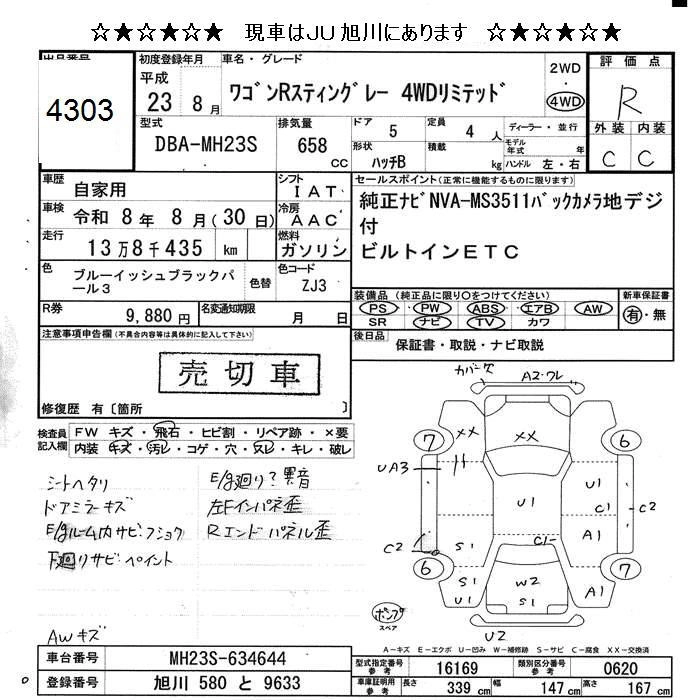 ☆★☆★☆★ 現車はJU旭川にあります ☆★☆★☆★
出品番号
4303
初度登録年月
平成 23 年 8 月
車名・グレード
ワゴンRスティングレー 4WDリミテッド
2WD
4WD
評価点
R
外装 内装
C C
型式
DBA-MH23S
排気量
658 cc
ドア 5
定員 4 人
形状 ハッチB
積載 kg
ディーラー・並行
モデル年式 年
ハンドル 左・右
車歴 自家用
シフト IAT
車検 令和 8 年 8 月 (30 日)
冷房 AAC
走行 13万8千435 km
燃料 ガソリン
セールスポイント(正常に機能するものに限ります)
純正ナビNVA-MS3511バックカメラ地デジ
付
ビルトインETC
色 ブルーイッシュブラックパ
ール3
色替
色コード ZJ3
R券 9,880 円
名変通知期限 月 日
装備品(純正品に限り○をつけてください)
PS PW ABS エアB AW
SR ナビ TV カワ
新車保証書
有・無
後日品 保証書・取説・ナビ取説
注意事項申告欄(不具合内容等は具体的に記入して下さい)
売切車
修復歴 有〔箇所 〕
検査員記入欄
FW キズ・飛石・ヒビ割・リペア跡・×要
内装 キズ・汚レ・コゲ・穴・スレ・キレ・破レ
シートヘタリ
ドアミラーキズ
E/gルーム内サビ・フショク
下廻りサビ・ペイント
E/g廻り?異音
左Fインパネ歪
Rエンドパネル歪
AWキズ
カバー欠
A2・ワレ
7 XX XX 6
UA3
U1 U1
C1 C2
C2 S1 C1 A1
6 S1 W2 S1 A1 7
ポンプ
スペア
U2
A-キズ E-エクボ U-凹み W-補修跡 S-サビ C-腐食 XX-交換済
車台番号 MH23S-634644
登録番号 旭川 580 と 9633
型式指定番号 参考 16169
類別区分番号 参考 0620
車庫証明用 参考 長さ 339 cm 幅 147 cm 高さ 167 cm